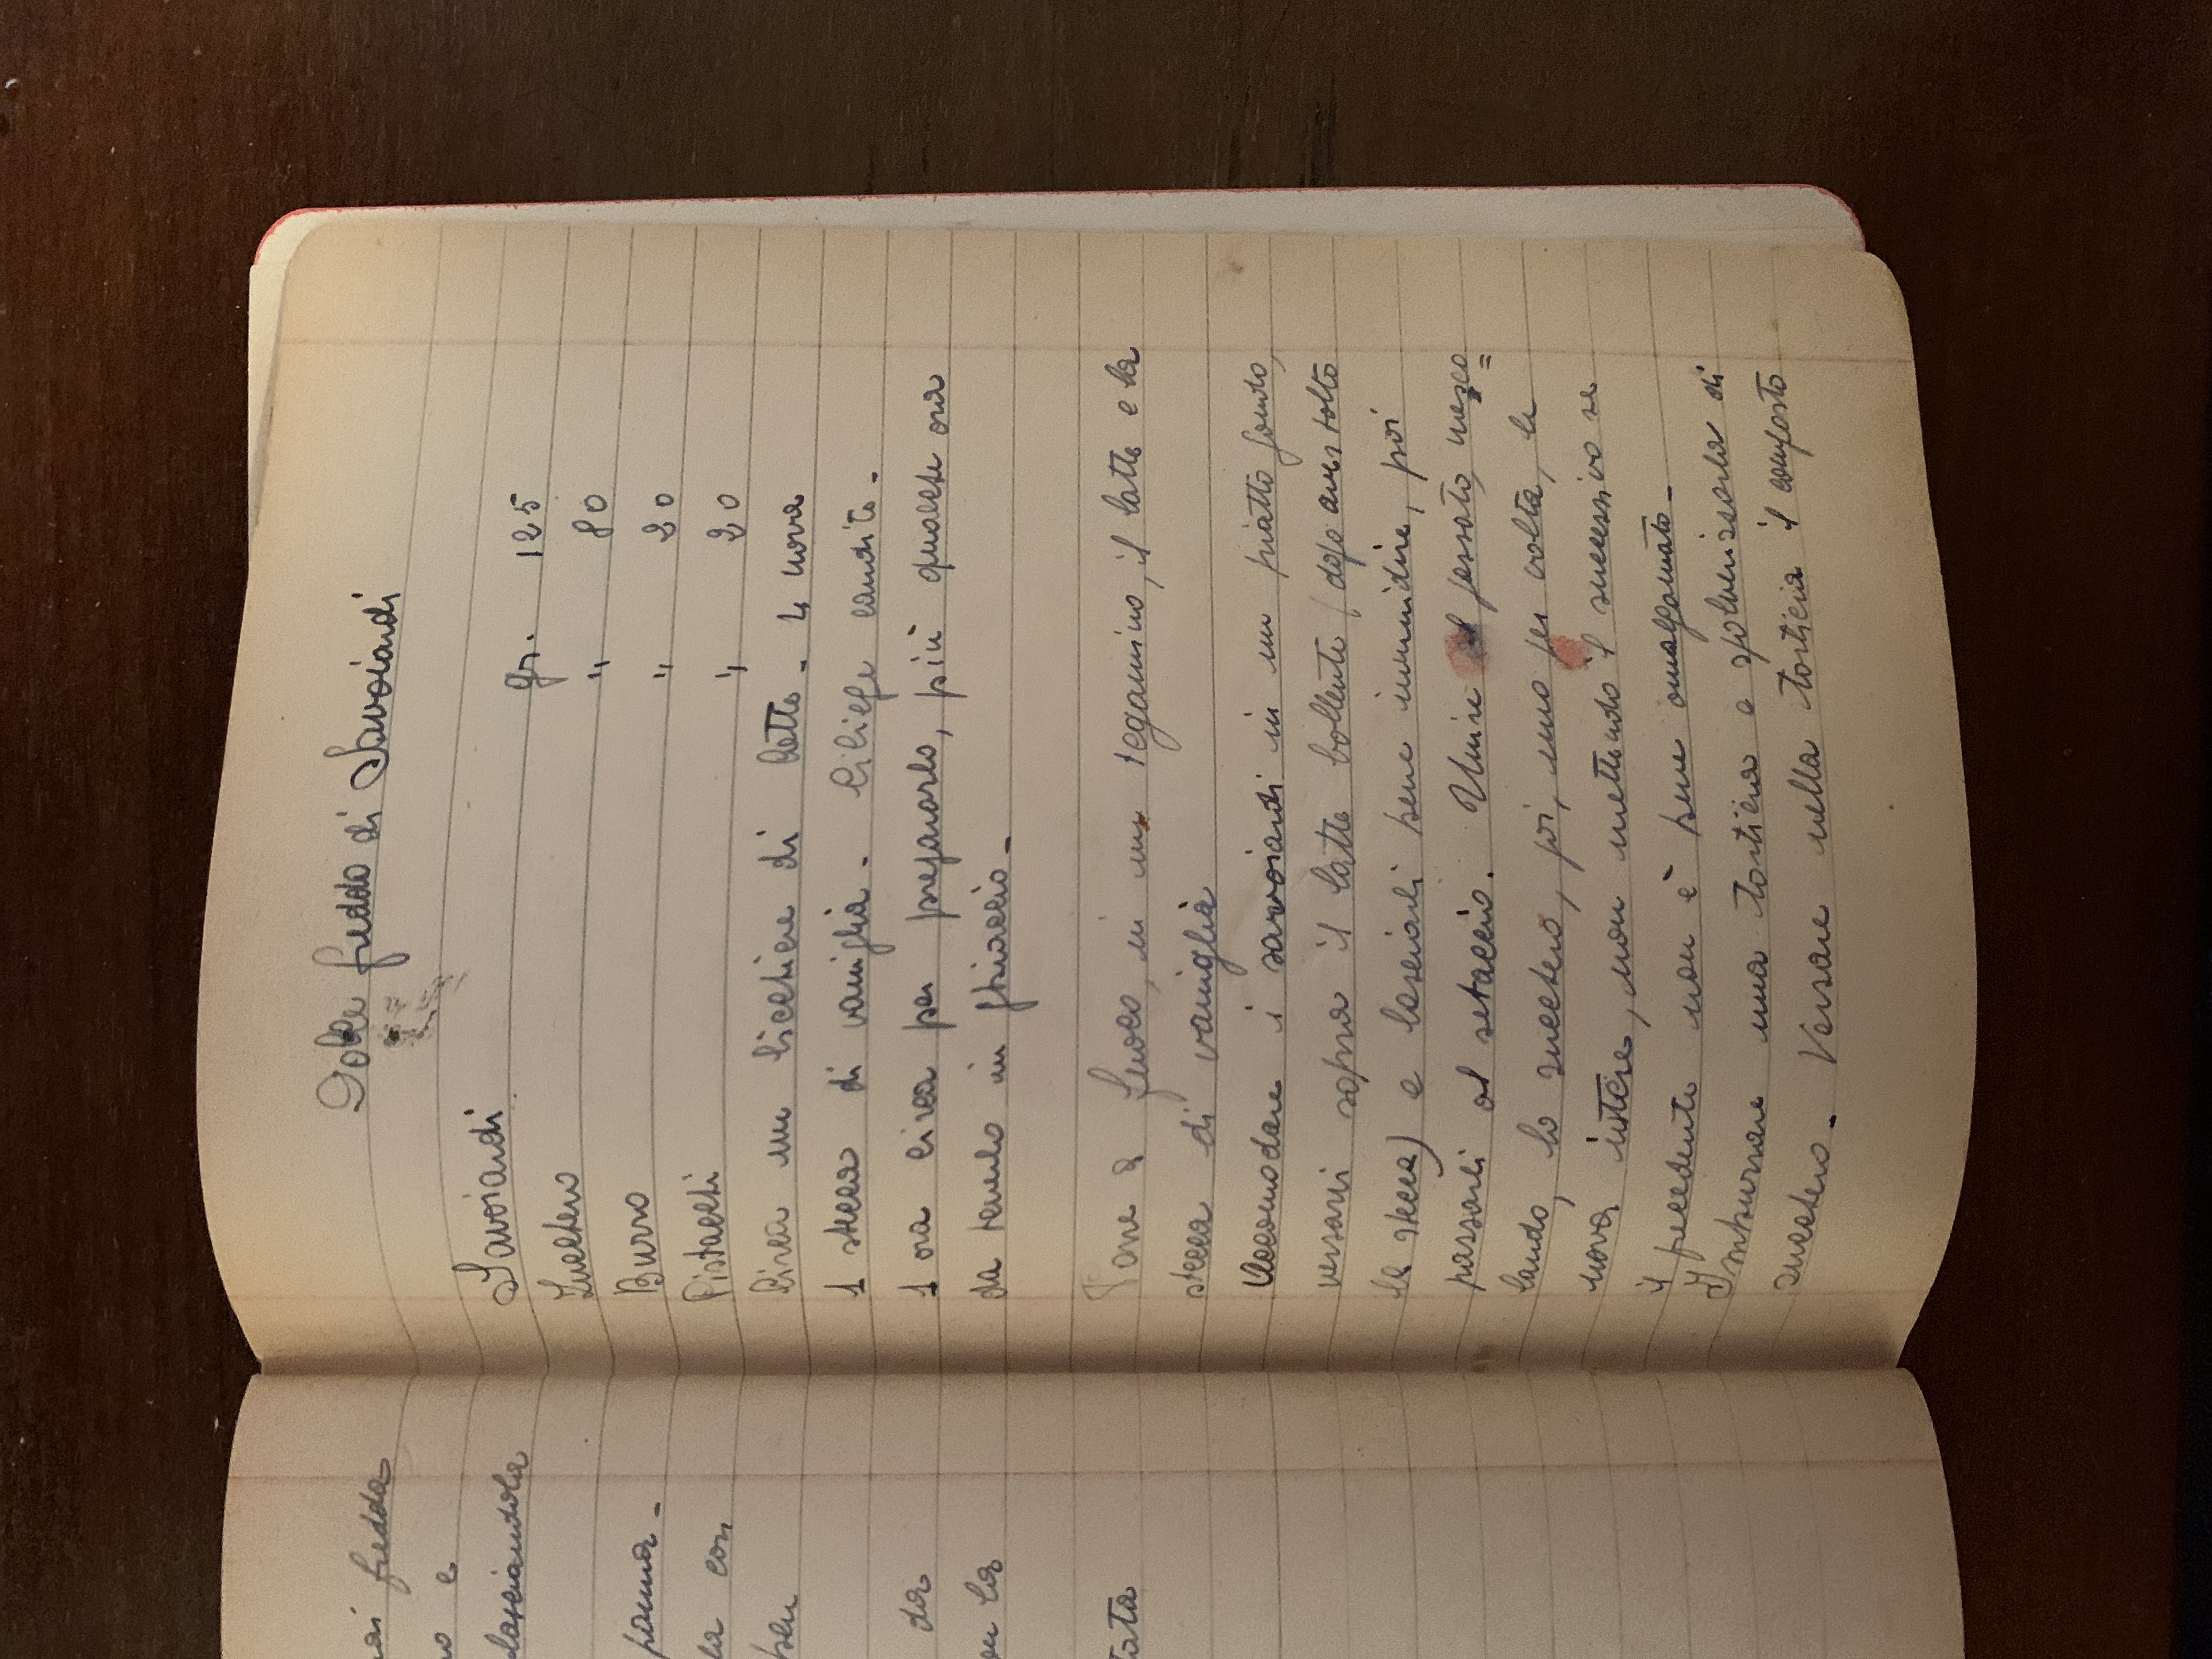 ai fredda
o e
lasciandola
panna -
la con
ben
da
on la
tata
Dolce freddo di Savoiardi
Savoiardi gr. 125
Zucchero " 80
Burro " 20
Pistacchi " 20
Circa un bicchiere di latte - 4 uova
1 stecca di vaniglia - Ciliege candite -
1 ora circa per prepararlo, più qualche ora
da tenerlo in ghiaccio -
Porre a fuoco, in un tegamino, il latte e la
stecca di vaniglia
Accomodare i savoiardi in un piatto fondo,
versarci sopra il latte bollente (dopo aver tolto
la stecca) e lasciarli bene inumidire, poi
passarli al setaccio. Unire al passato, mesco=
lando, lo zucchero, poi, uno per volta, le
uova intere, non mettendo il successivo se
il precedente non è bene amalgamato -
Imburrare una tortiera e spolverizzarla di
zucchero - Versare nella tortiera il composto